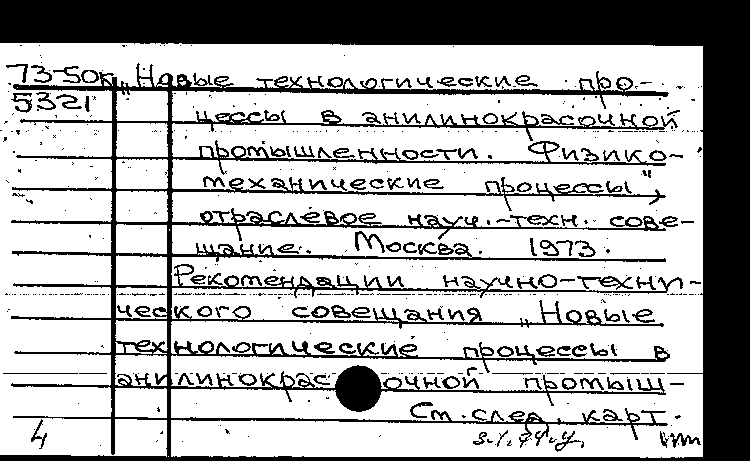 73-50к „Новые технологические про-
5321
цессы в анилинокрасочной
промышленности. Физико-
механические процессы",
отраслевое науч.-техн. сове-
щание. Москва. 1973.
Рекомендации научно-техни-
ческого совещания „Новые
технологические процессы в
анилинокрасочной промыш-
См. след. карт.
4